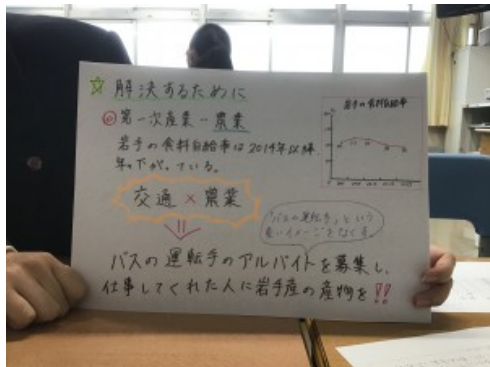 ☆ 解決するために
◎第一次産業…農業
岩手の食料自給率は2014年以降、
年々下がっている。
岩手の食料自給率
交通×農業
「バスの運転手」という
悪いイメージをなくす。
バスの運転手のアルバイトを募集し、
仕事してくれた人に岩手産の産物を!!